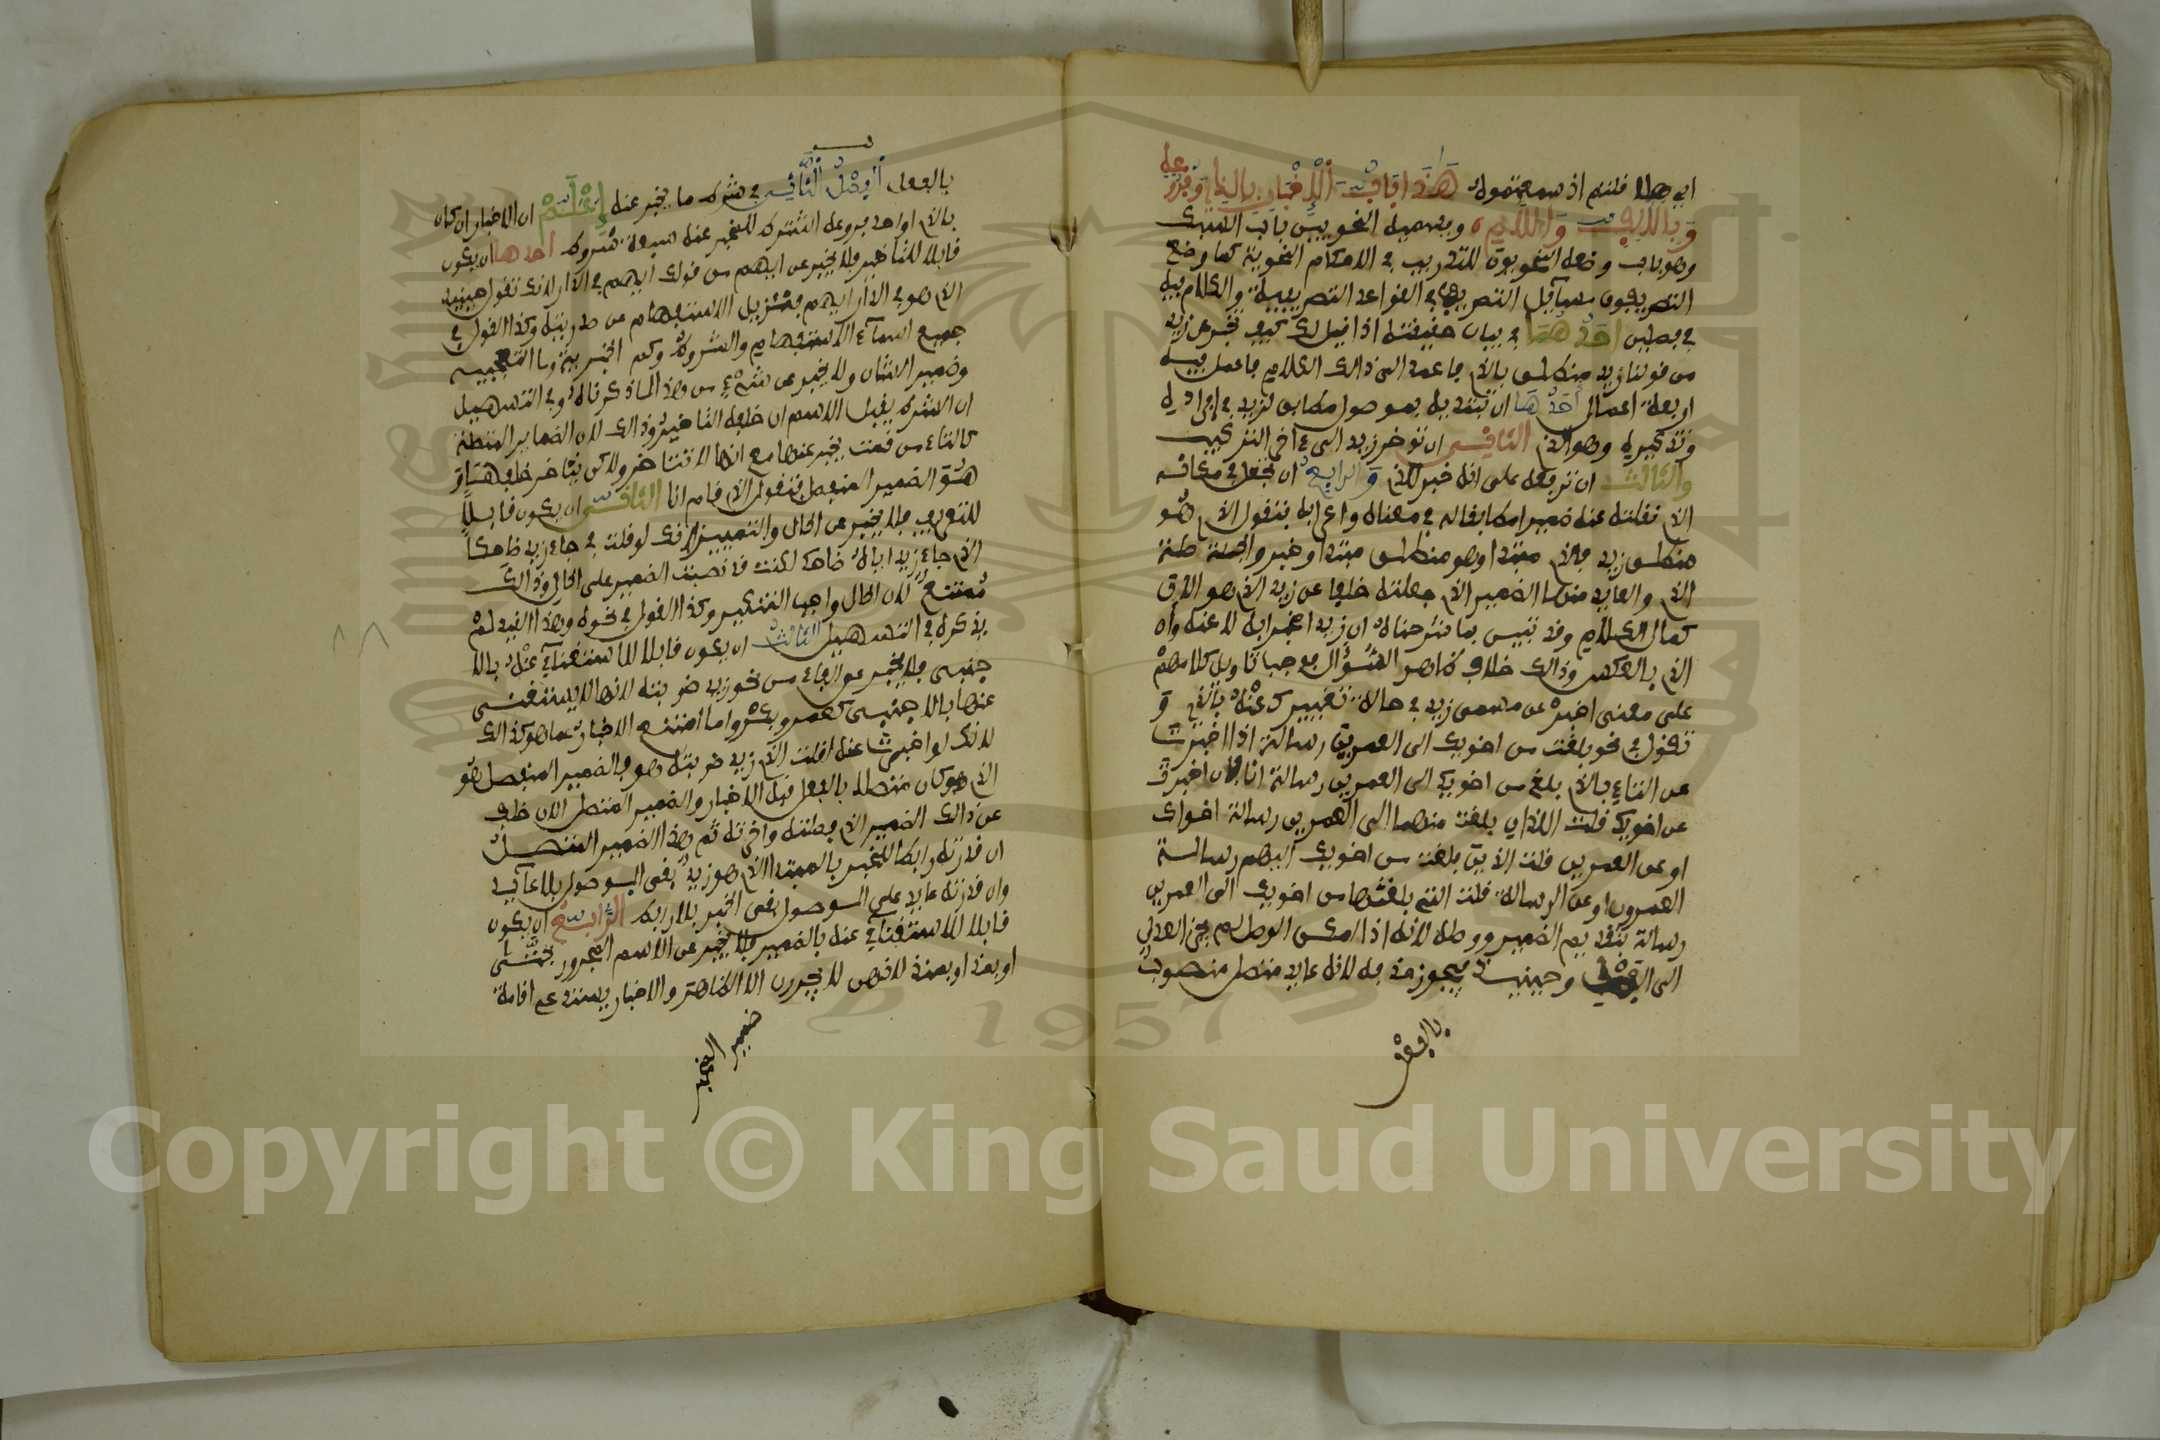 اي هلا قلتم اذ سمعتموه هذا باب الاخبار بالذي وفروعه
وبالالف واللام ويسميه النحويين باب السبك
وهو باب وضعه النحويون للتدريب في الاحكام النحوية كما وضع
التصريفيون مسايل التمرين في القواعد التصريفية والكلام فيه
في فصلين احدهما في بيان حقيقته اذا قيل لك كيف تخبر عن زيد
من قولنا زيد منطلق بالذي فاعمد الى ذالك الكلام فاعمل فيه
اربعة اعمال احدها ان تبتديه بموصول مطابق لزيد في افراده
وتذكيره وهو الذي الثاني ان توخر زيد الى ءاخر التركيب
والثالث ان ترفعه على انه خبر للذي والرابع ان تجعل في مكانه
الذي نقلته عنه ضميرا مطابقا له في معناه واعرابه فتقول الذي هو
منطلق زيد فالذي مبتدا وهو منطلق مبتدا وخبر والجملة صلة
الذي والعايد منها الضمير الذي جعلته خلفا عن زيد الذي هو الان
كمال الكلام وقد تبين بما شرحناه ان زيدا مخبر به لا عنه وان
الذي بالعكس وذالك خلاف ظاهر السؤال فوجب تاويل كلامهم
على معنى اخبر عن مسمى زيد في حالة تعبيرك عنه بالذي و
تقول في نحو بلغت من اخويك الى العمرين رسالة اذا اخبرت
عن التاء بالذي بلغ من اخويك الى العمرين رسالة انا فان اخبرت
عن اخويك قلت اللذان بلغت منهما الى العمرين رسالة اخواك
او عن العمرين قلت الذين بلغت من اخويك اليهم رسالة
العمرون او عن الرسالة قلت التي بلغتها من اخويك الى العمرين
رسالة بتقديم الضمير ووصله لانه اذا امكن الوصل لم يجز العدول
الى الفصل وحينيذ فيجوز حذفه لانه عايد متصل منصوب
بالفعل
بالفعل الفصل الثاني في شرط ما يخبر عنه اعلم ان الاخبار ان كان
بالذي او احد فروعه اشترط للمخبر عنه سبعة شروط احدها ان يكون
قابلا للتاخير فلا يخبر عن ايهم من قولك ايهم في الدار لانك تقول حينيذ
الذي هو في الدار ايهم فتزيل الاستفهام عن صدريته وكذا القول في
جميع اسماء الاستفهام والشروط وكم الخبرية وما التعجبية
وضمير الشان ولا يخبر عن شيء من هذا لما ذكرناه وفي التسهيل
ان الشرط يقبل الاسم او خلفه التاخير وذالك لان الضماير المتصلة
كالتاء من قمت يخبر عنها مع انها لا تتاخر ولاكن يتاخر خلفها و
هو الضمير المنفصل فتقول الذي قام انا الثاني ان يكون قابلا
للتعريف فلا يخبر عن الحال والتمييز لانك لو قلت في جاء زيد ضاحكا
الذي جاء زيد اياه ضاحك لكنت قد نصبت الضمير على الحال وذالك
ممتنع لان الحال واجب التنكير وكذا القول في نحوه وهذا القيد لم
يذكره في التسهيل الثالث ان يكون قابلا للاستغناء عنه بالا
جنبي فلا يخبر عن الهاء من نحو زيد ضربته لانها لا يستغنى
عنها بالاجنبي كعمرو وبكر واما امتنع الاخبار عما هو كذالك
لانك لو اخبرت عنه لقلت الذي زيد ضربته هو فالضمير المنفصل هو
الذي هو كان متصلا بالفعل قبل الاخبار والضمير المتصل الان خلف
عن ذالك الضمير الذي فصلته واخرته ثم هذا الضمير المتصل
ان قدرته رابطا للخبر بالمبتدا الذي هو زيد بقي الموصول بلا عايد
وان قدرته عايدا على الموصول بقي الخبر بلا رابط الرابع ان يكون
قابلا للاستغناء عنه بالضمير فلا يخبر عن الاسم المجرور بحتى
او بمذ او بمنذ لانهن لا يجررن الا الظاهر والاخبار يستدعي اقامة
ضمير المخبر
Copyright © King Saud University
1957